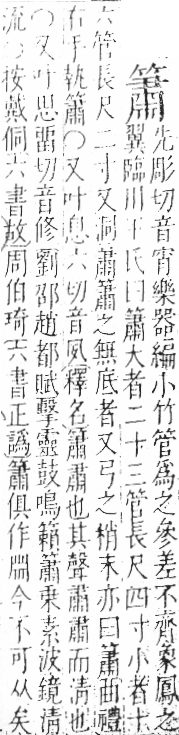 簫先彫切音宵樂器編小竹管爲之參差不齊象鳳之
翼臨川王氏曰簫大者二十三管長尺四寸小者十
六管長尺二寸又洞簫簫之無底者又弓之稍末亦曰簫曲禮
右手執簫○又叶息六切音夙釋名簫肅也其聲肅肅而清也
○又叶思畱切音修劉邵趙都賦擊靈鼓鳴籟簫乗素波鏡清
流○按戴侗六書故周伯琦六書正譌簫俱作今不可从矣